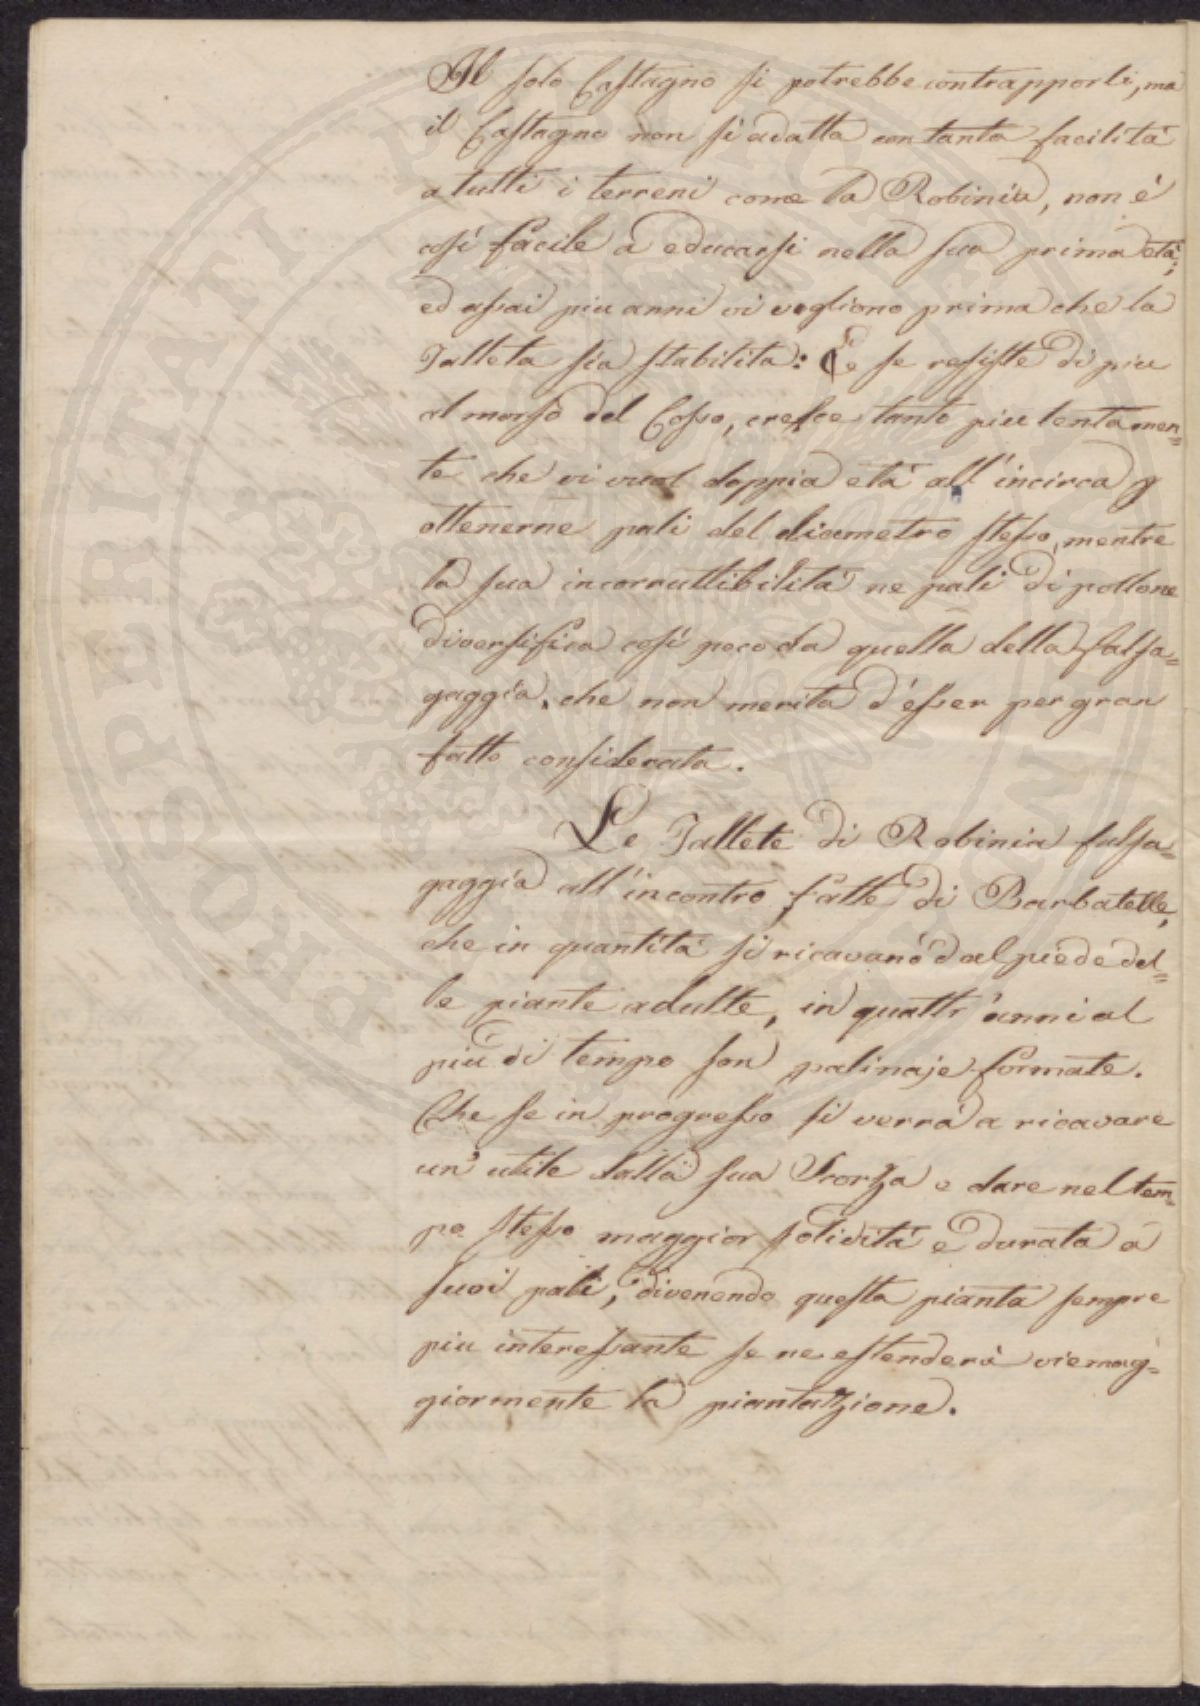 Il solo Castagno si potrebbe contrapporli, ma
il Castagno non si adatta con tanta facilità
a tutti i terreni come la Robinia, non è
così facile a educarsi nella sua prima età;
ed assai piu anni vi vogliono prima che la
Talleta sia stabilita: E se resiste di piu
al morso del Cosso, cresce tanto piu lentamen=
te che vi vuol doppia età all'incirca p
ottenerne pali del diametro stesso, mentre
la sua incorruttibilità ne pali di pollone
diversifica così poco da quella della falsa=
gaggia, che non merita d'esser per gran
fatto considerata.
Le Tallete di Robinia falsa=
gaggia all'incontro fatte di Barbatelle,
che in quantità si ricavano dal piede del=
le piante adulte, in quattr'anni al
più di tempo son palinaje formate.
Che se in progresso si verrà a ricavare
un'utile dalla sua Scorza e dare nel tem=
po stesso maggior solidità e durata a
suoi pali, divenendo questa pianta sempre
piu interessante se ne estenderà viemag=
giormente la piantazione.
PROSPERITATI PUBLICAE